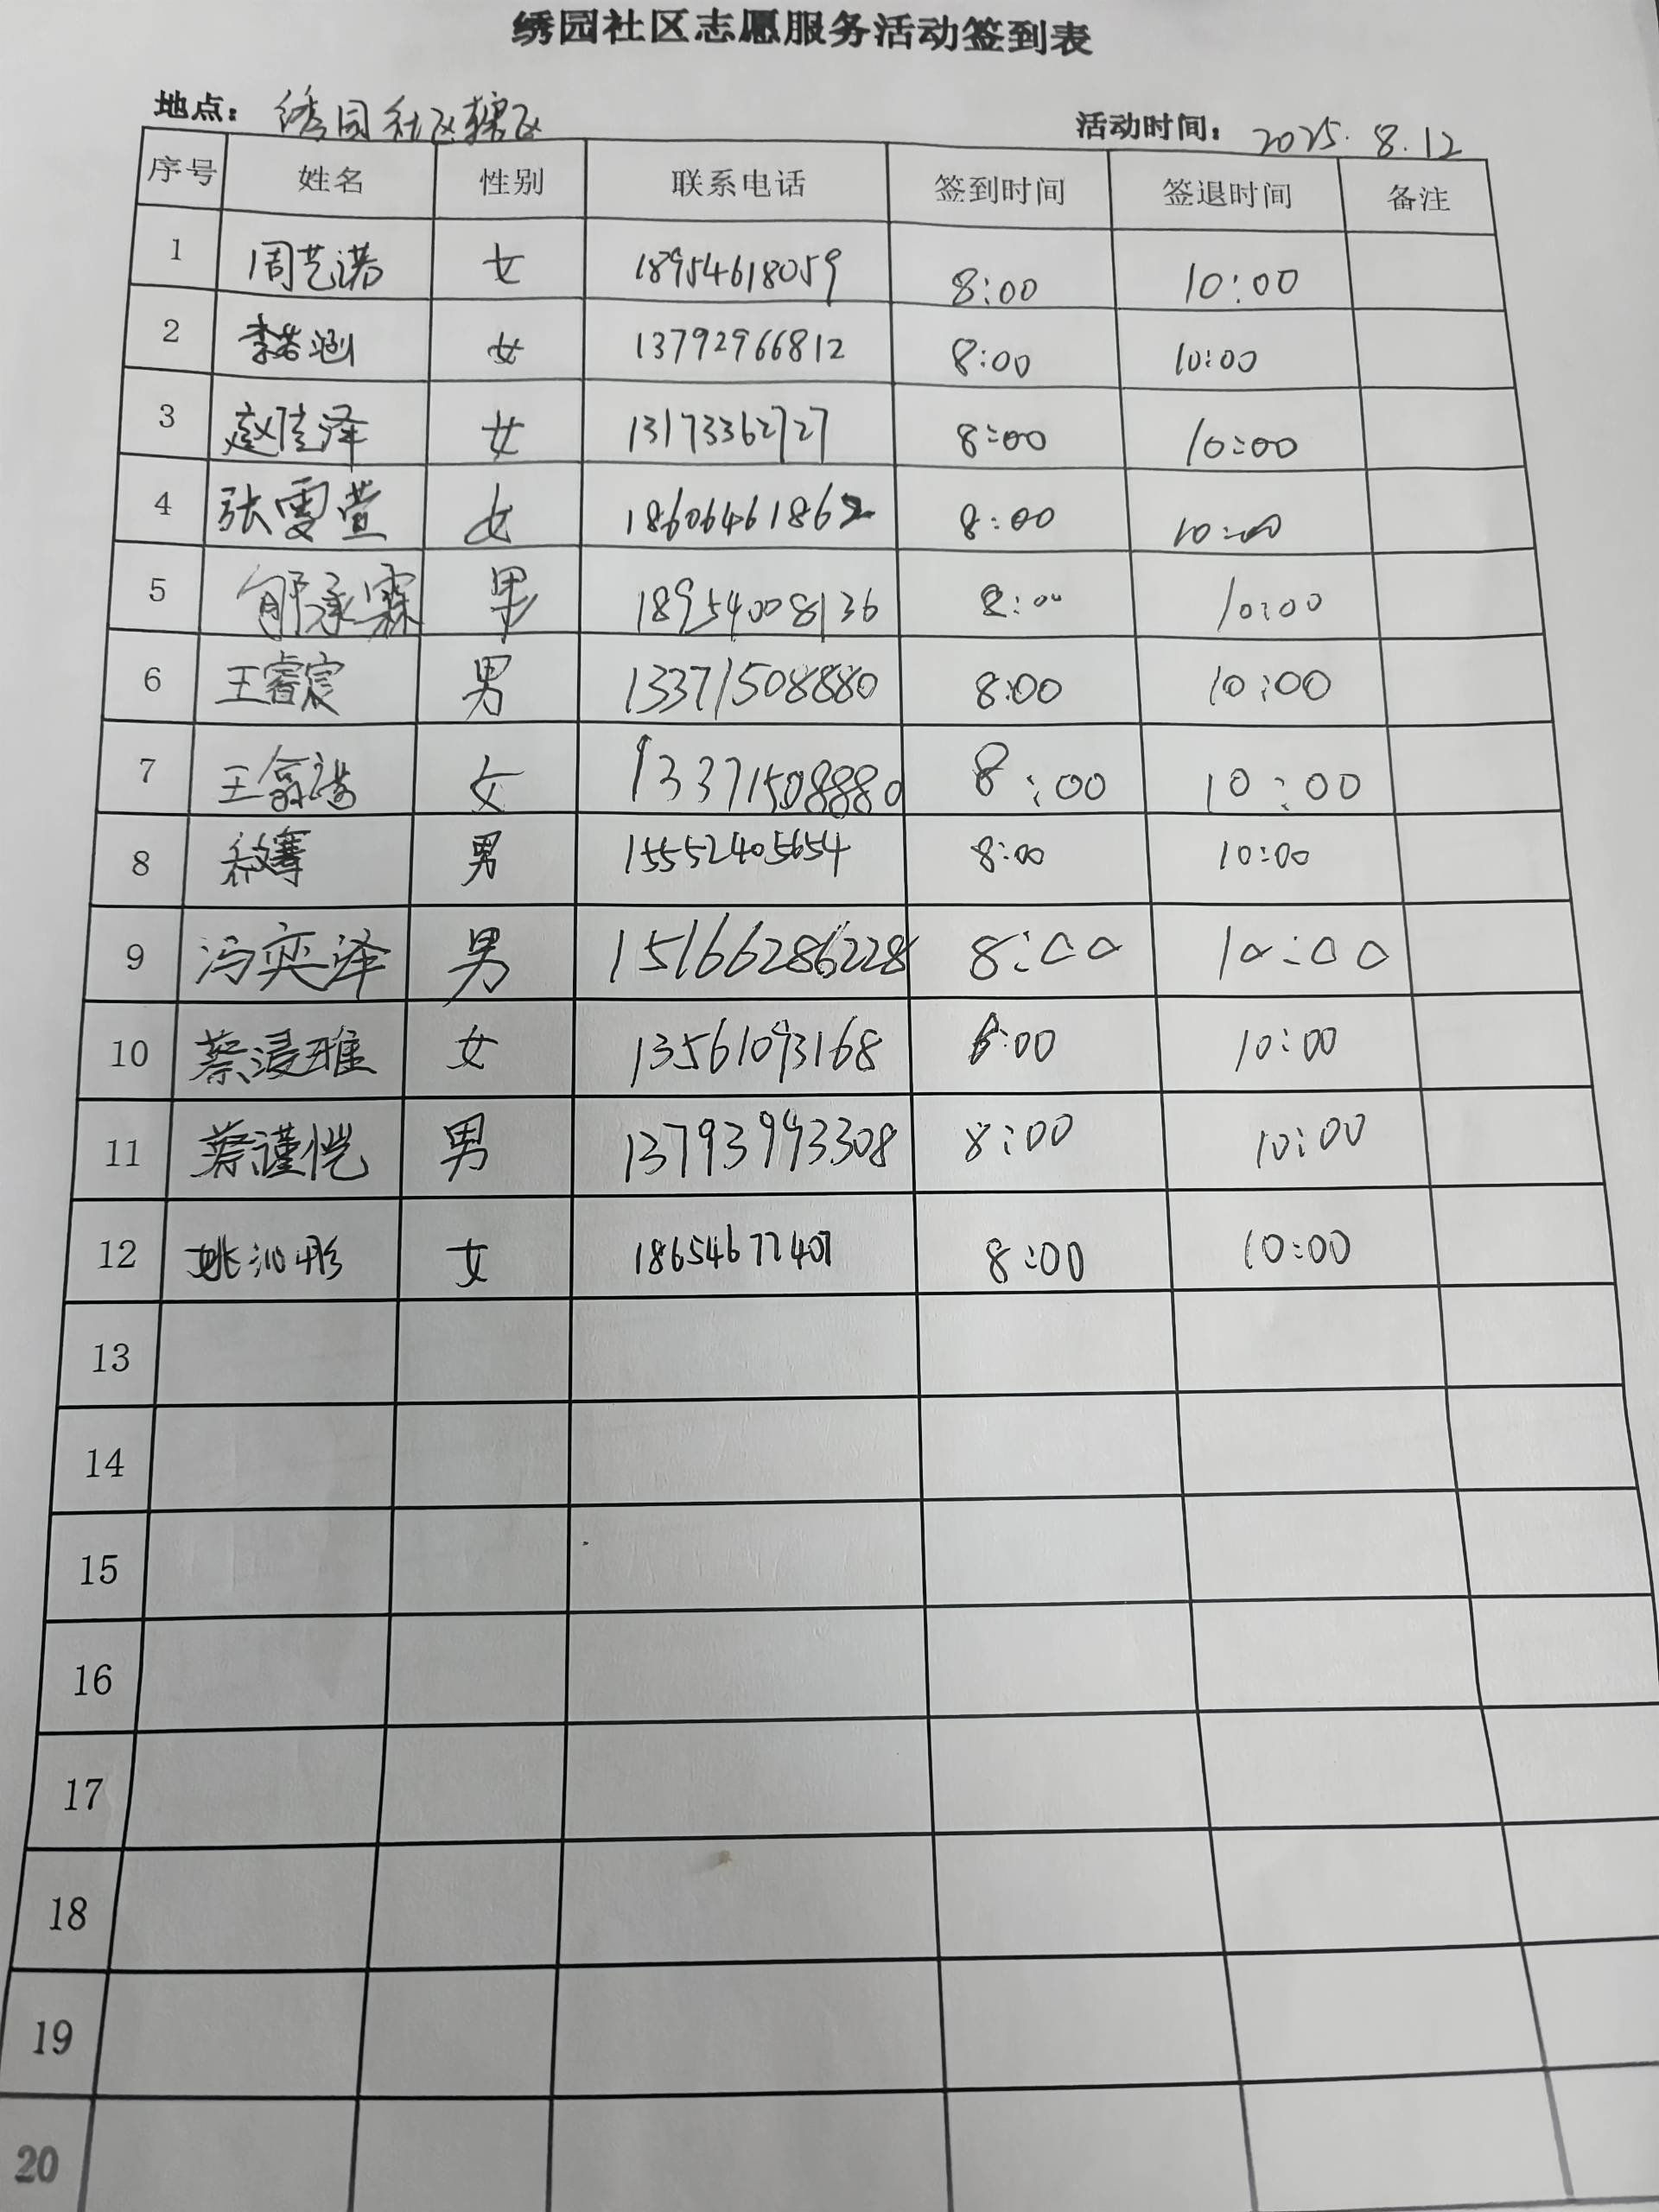 绣园社区志愿服务活动签到表
地点：绣园社区辖区 活动时间：2025.8.12
序号 姓名 性别 联系电话 签到时间 签退时间 备注
1 周艺诺 女 18954618059 8:00 10:00
2 李若涵 女 13792966812 8:00 10:00
3 赵佳泽 女 13173362727 8:00 10:00
4 张雯萱 女 18606461862 8:00 10:00
5 郇承霖 男 18954008136 8:00 10:00
6 王睿宸 男 13371508880 8:00 10:00
7 王翕诺 女 13371508880 8:00 10:00
8 男 15552405654 8:00 10:00
9 冯奕泽 男 15166286228 8:00 10:00
10 蔡浸雅 女 13561093168 8:00 10:00
11 蔡谨恺 男 13793993308 8:00 10:00
12 姚沁彤 女 18654677407 8:00 10:00
13
14
15
16
17
18
19
20